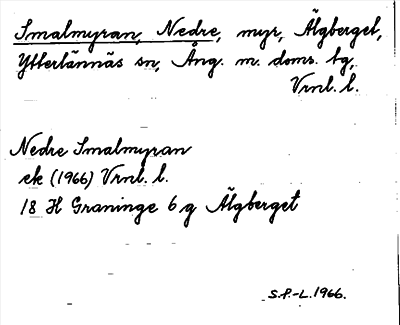 Smalmyran, Nedre, myr, Älgberget,
Ytterlännäs sn, Ång. m. doms. tg,
Vrnl. l.
Nedre Smalmyran
ek (1966) Vrnl. l.
18 H Graninge 6 g Älgberget
S.P.-L. 1966.